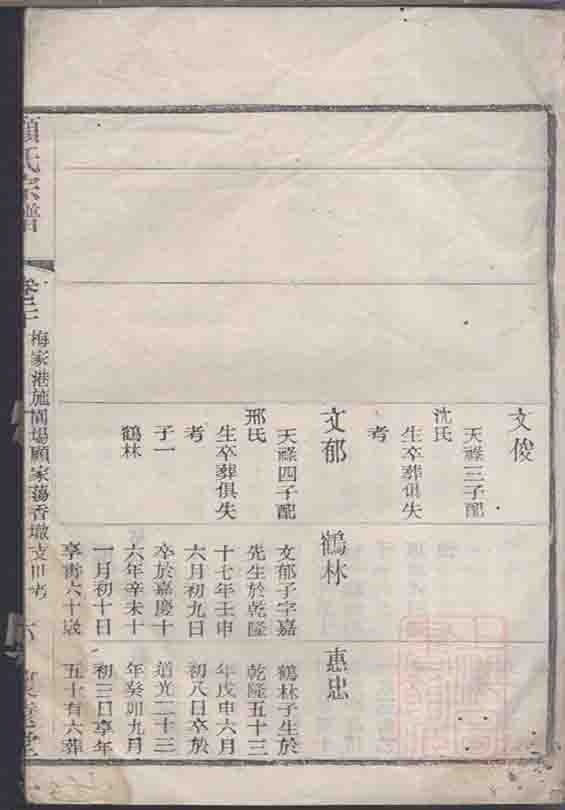 文俊
天祿三子配
沈氏
生卒葬俱失
考
文郁
天祿四子配
邢氏
生卒葬俱失
考
子一
鶴林
鶴林
文郁子字嘉
先生於乾隆
十七年壬申
六月初九日
卒於嘉慶十
六年辛未十
一月初十日
享壽六十歲
惠忠
鶴林子生於
乾隆五十三
年戊申六月
初八日卒於
道光二十三
年癸卯九月
初三日享年
五十有六葬
顧氏宗譜
卷二十
梅家港施閣場顧家蕩香墩支世考
六